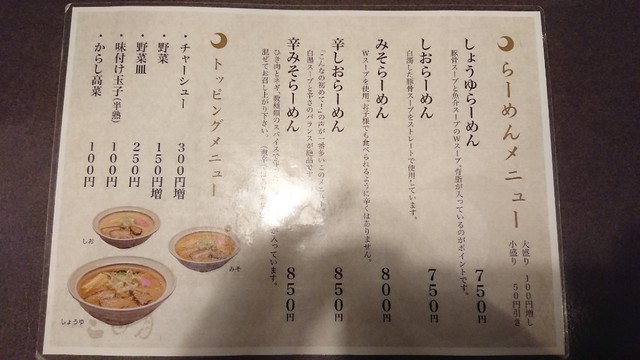 らーめんメニュー
大盛り 100円増し
小盛り 50円引き
しょうゆらーめん 750円
豚骨スープと魚介スープのWスープ。背脂が入っているのがポイントです。
しおらーめん 750円
白濁した豚骨スープをストレートで使用しています。
みそらーめん 800円
Wスープを使用。お子様でも食べられるように辛くはありません。
辛しおらーめん 850円
「こんなの初めて!」の声が一番多いこのメニュー。
白湯スープと辛さのバランスが絶品です。
辛みそらーめん 850円
ひき肉とネギ、数種類のスパイスで
入っています。
混ぜてお召し上がり下さい。
トッピングメニュー
・チャーシュー 300円増
・野菜 150円増
・野菜皿 250円
・味付け玉子(半熟) 100円
・からし高菜 100円
しお
みそ
しょうゆ